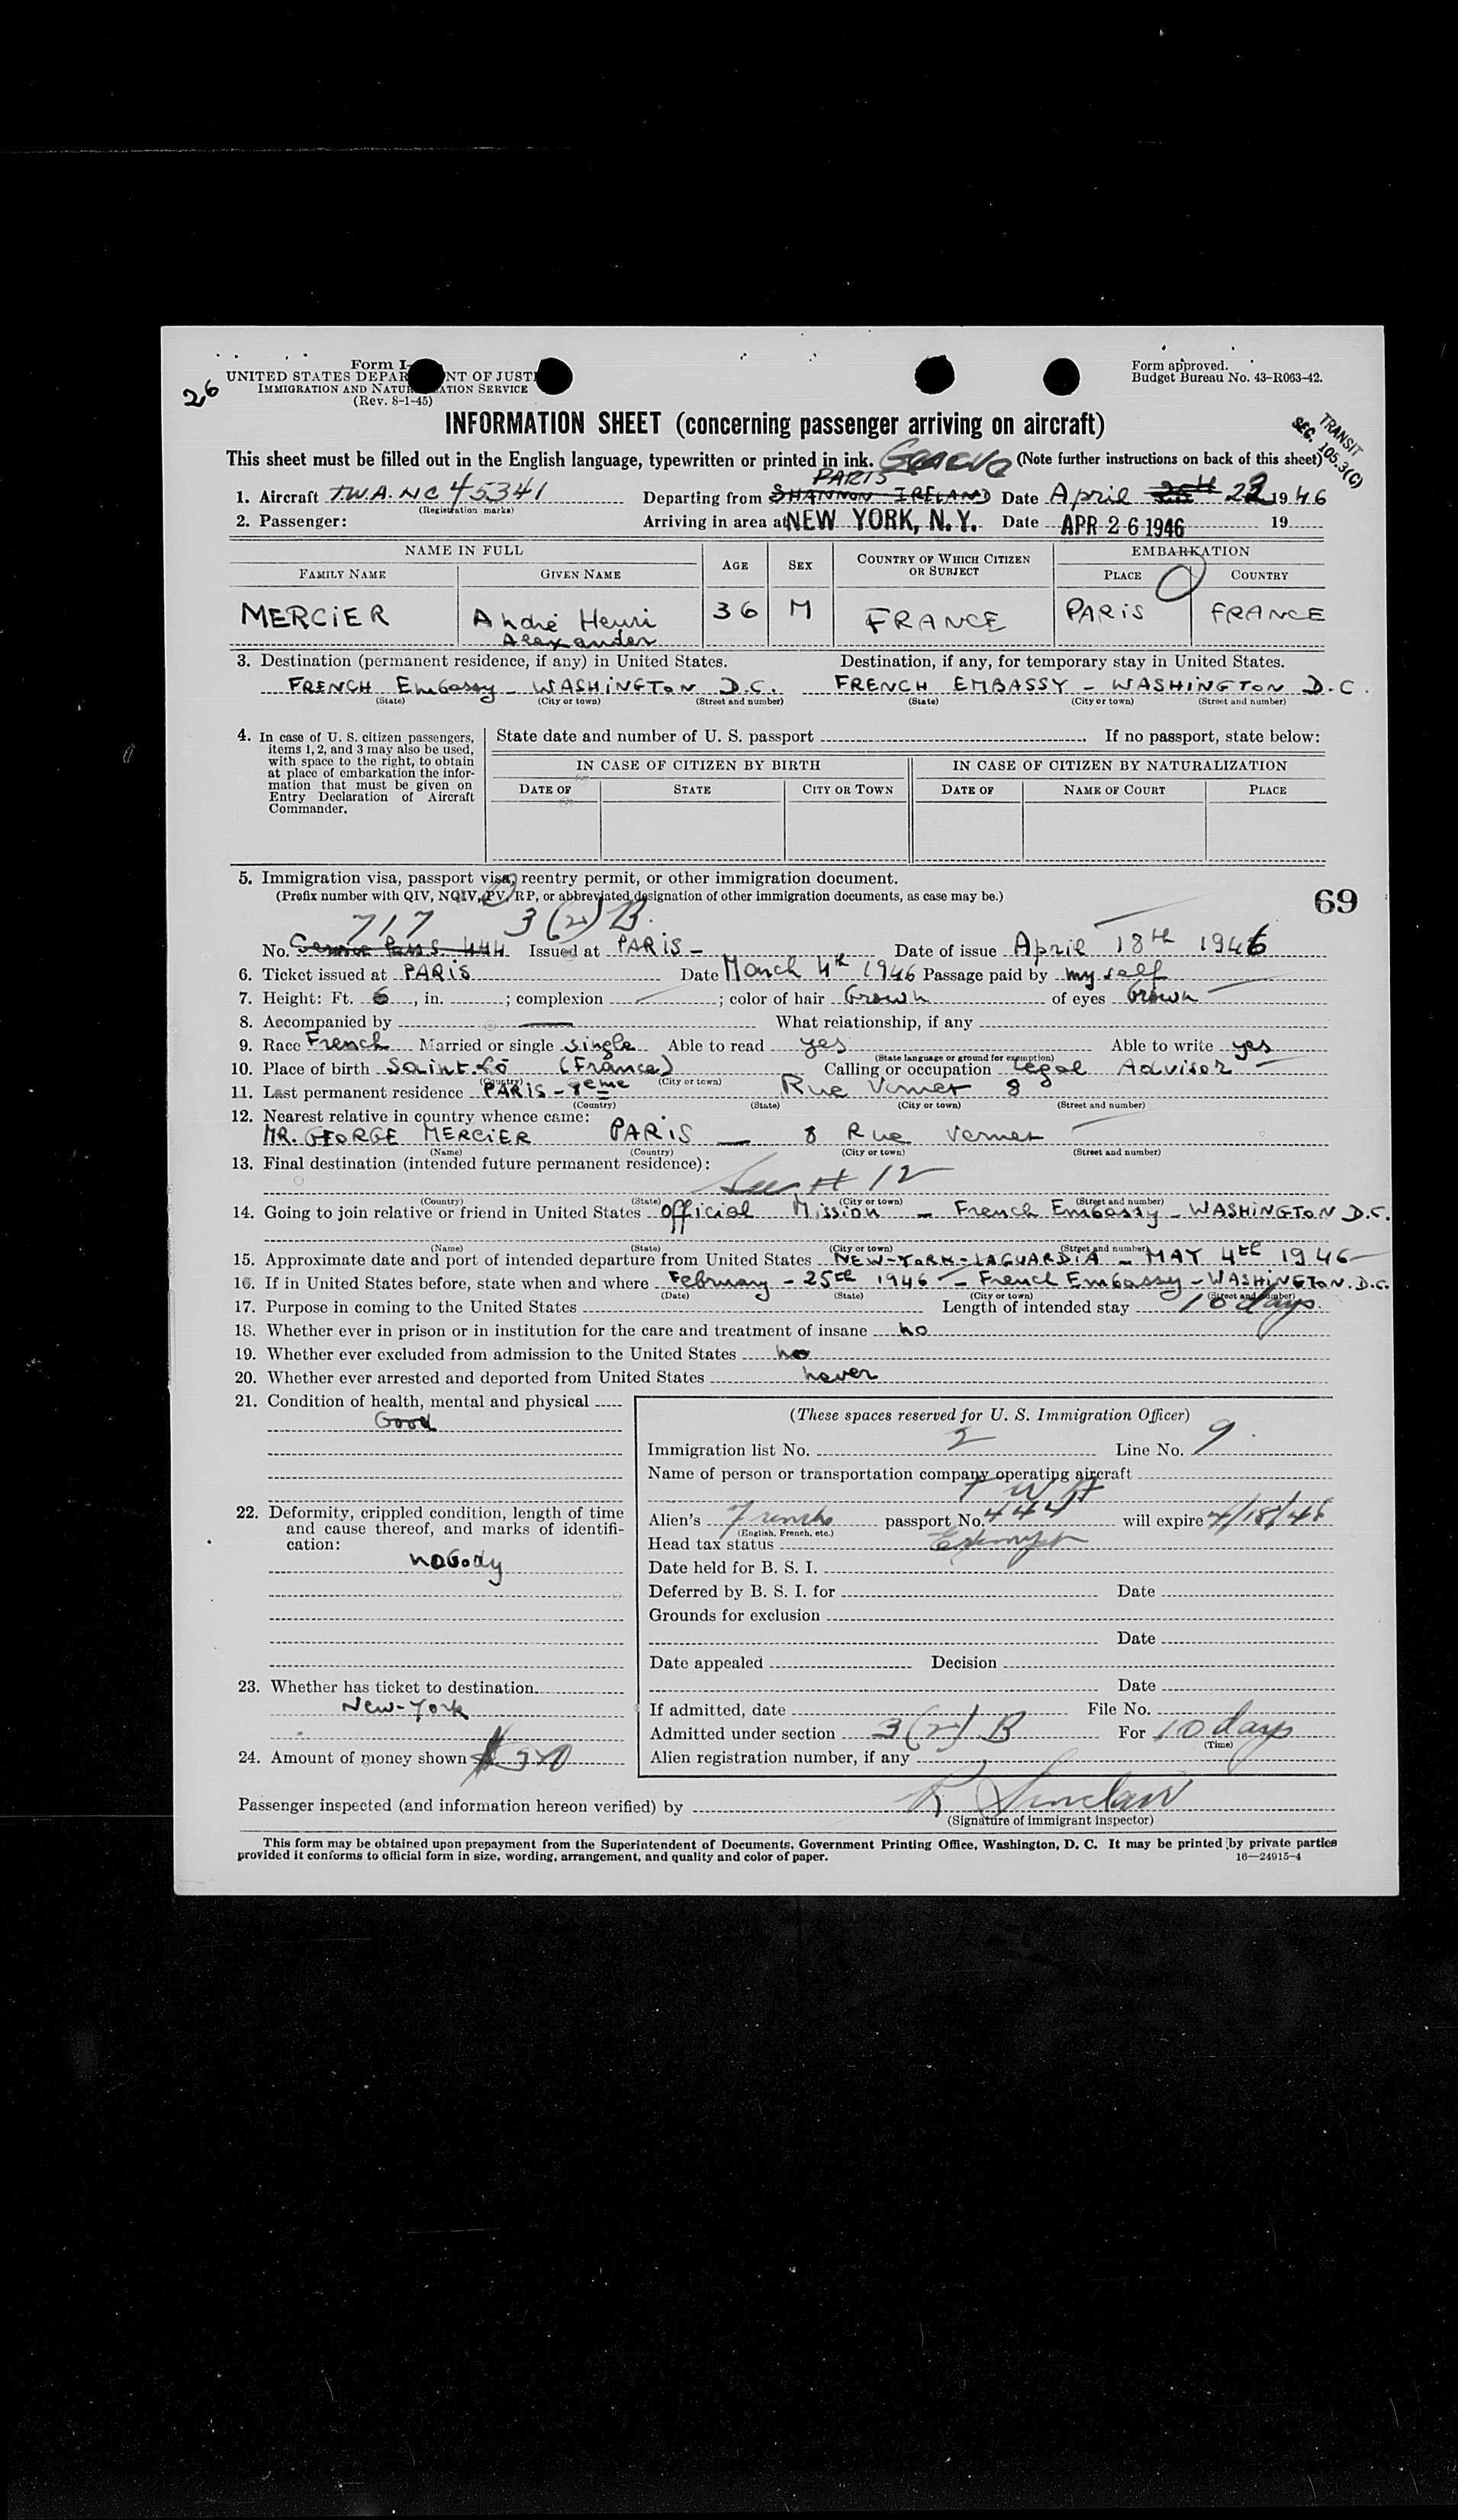 Form I-
UNITED STATES DEPAR NT OF JUST
IMMIGRATION AND NATUR ATION SERVICE
(Rev. 8-1-45)
Form approved.
Budget Bureau No. 43-R063-42.
26
INFORMATION SHEET (concerning passenger arriving on aircraft)
TRANSIT
SEC. 105.3(C)
This sheet must be filled out in the English language, typewritten or printed in ink. Geneva (Note further instructions on back of this sheet)
PARIS
1. Aircraft T.W.A. NC 45341 Departing from SHANNON IRELAND Date April 23 1946
(Registration marks)
2. Passenger: Arriving in area at NEW YORK, N.Y. Date APR 26 1946 19
NAME IN FULL AGE SEX COUNTRY OF WHICH CITIZEN OR SUBJECT EMBARKATION
FAMILY NAME GIVEN NAME PLACE COUNTRY
MERCIER André Henri 36 M FRANCE PARIS FRANCE
Alexander
3. Destination (permanent residence, if any) in United States. Destination, if any, for temporary stay in United States.
FRENCH Embassy - WASHINGTON D.C. FRENCH EMBASSY - WASHINGTON D.C.
(State) (City or town) (Street and number) (State) (City or town) (Street and number)
4. In case of U. S. citizen passengers,
items 1, 2, and 3 may also be used,
with space to the right, to obtain
at place of embarkation the infor-
mation that must be given on
Entry Declaration of Aircraft
Commander.
State date and number of U. S. passport . If no passport, state below:
IN CASE OF CITIZEN BY BIRTH IN CASE OF CITIZEN BY NATURALIZATION
DATE OF STATE CITY OR TOWN DATE OF NAME OF COURT PLACE
5. Immigration visa, passport visa, reentry permit, or other immigration document.
(Prefix number with QIV, NQIV, PV, RP, or abbreviated designation of other immigration documents, as case may be.)
69
717 3(2)B.
No. Service Pass. 444 Issued at PARIS - Date of issue April 18th 1946
6. Ticket issued at PARIS Date March 4th 1946 Passage paid by my self
7. Height: Ft. 6, in. ; complexion ; color of hair Brown of eyes Brown
8. Accompanied by What relationship, if any
9. Race French Married or single single Able to read yes Able to write yes
(State language or ground for exemption)
10. Place of birth Saint.Lô (France) Calling or occupation legal Advisor
(Country) (City or town)
11. Last permanent residence PARIS - 8eme Rue Vernet 8
(Country) (State) (City or town) (Street and number)
12. Nearest relative in country whence came:
MR. GEORGE MERCIER PARIS - 8 Rue Vernet
(Name) (Country) (City or town) (Street and number)
13. Final destination (intended future permanent residence):
See # 12
(Country) (State) (City or town) (Street and number)
14. Going to join relative or friend in United States Official Mission - French Embassy - WASHINGTON D.C.
(Name) (State) (City or town) (Street and number)
15. Approximate date and port of intended departure from United States NEW-YORK-LAGUARDIA - MAY 4th 1946
16. If in United States before, state when and where February - 25th 1946 - French Embassy - WASHINGTON. D.C.
(Date) (State) (City or town) (Street and number)
17. Purpose in coming to the United States Length of intended stay 10 days.
18. Whether ever in prison or in institution for the care and treatment of insane no
19. Whether ever excluded from admission to the United States no
20. Whether ever arrested and deported from United States never
21. Condition of health, mental and physical
Good
22. Deformity, crippled condition, length of time
and cause thereof, and marks of identifi-
cation:
nobody
23. Whether has ticket to destination
New-York
24. Amount of money shown
(These spaces reserved for U. S. Immigration Officer)
Immigration list No. 2 Line No. 9
Name of person or transportation company operating aircraft
TWA
Alien's French passport No. 444 will expire 4/18/48
(English, French, etc.)
Head tax status Exempt
Date held for B. S. I.
Deferred by B. S. I. for Date
Grounds for exclusion
Date
Date appealed Decision
Date
If admitted, date File No.
Admitted under section 3(2)B For 10 days
(Time)
Alien registration number, if any
Passenger inspected (and information hereon verified) by R Sinclair
(Signature of immigrant inspector)
This form may be obtained upon prepayment from the Superintendent of Documents, Government Printing Office, Washington, D. C. It may be printed by private parties
provided it conforms to official form in size, wording, arrangement, and quality and color of paper.
16—24915-4